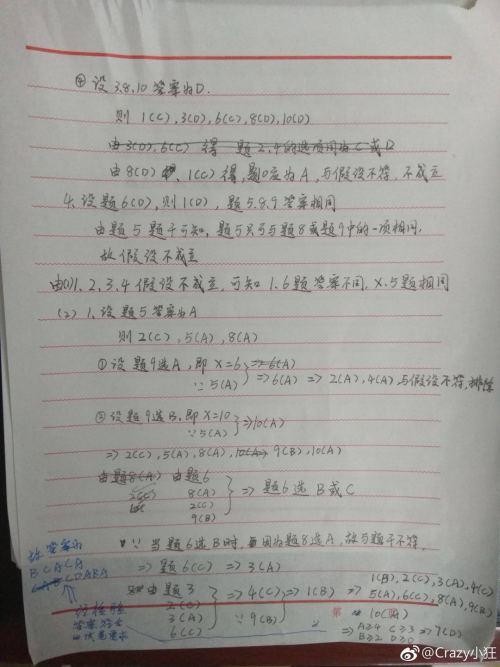 ④设3,8,10答案为D.
则 1(C),3(D),6(C),8(D),10(D)
由3(D),6(C) 得 题2,4的选项同为C或D
由8(D) 1(C)得,题10应为A,与假设不符,不成立
4.设题6(D),则1(D),题5.8.9答案相同
由题5题干可知,题5只可与题8或题9中的一项相同,
故假设不成立
由(1)1,2,3,4假设不成立,可知1.6题答案不同,X.5题相同
(2) 1,设题5答案为A
则2(C),5(A),8(A)
①设题9选A,即X=6 ⇒6(A)
∵5(A) ⇒6(A) ⇒2(A),4(A)与假设不符,排除
②设题9选B,即X=10
∵5(A) ⇒10(A)
⇒2(C),5(A),8(A),10(A)⇒9(B),10(A)
由题8(A) 由题6
2(C) 8(A)
2(C)
9(B)
⇒题6选B或C
∵当题6选B时,因为题8选A,故与题干不符,
⇒题6(C)⇒3(A)
由题3
2(C)
3(A)
6(C)
⇒4(C)
∵9(B)
⇒1(B)
⇒
1(B),2(C),3(A),4(C)
5(A),6(C),8(A),9(B)
10(A)
⇒A≥4 C≥3
B≥2 D≥0
⇒7(D)
故答案为
BCACA
CDABA
经检验
答案符合
第
@Crazy小狂